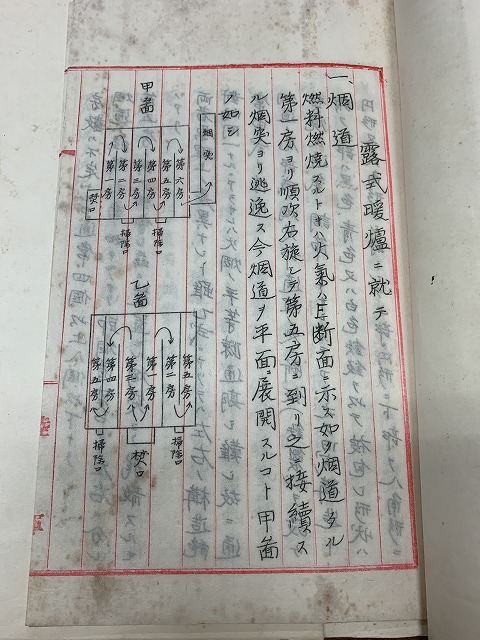 露式暖爐ニ就テ
一、烟道
燃料燃焼スルトキハ火氣ハ断面ニ示ス如ク烟道タル
第一房ヨリ順次右旋シテ第五房ニ到リ之ニ接續ス
ル烟突ヨリ逃逸ス今烟道ヲ平面ニ展開スルコト甲圖
ノ如シ
甲圖
烟突
第六房
第五房
第四房
第三房
第二房
第一房
焚口
掃除口
掃除口
乙圖
第五房
第二房
第一房
第三房
第四房
第五房
掃除口
焚口
掃除口